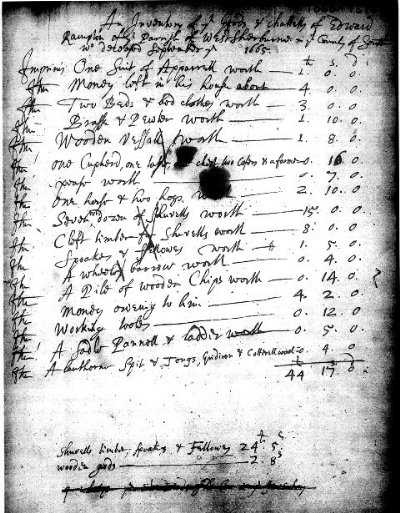 An Inventory of ye goods & chattells of Edward
Rawington of ye Parish of West Sherburne in ye County of South
deceased September ye 1665.
li s d
Imprimis One Suit of Apparrell worth — 1. 0. 0
Itm Money left in his house about — 4. 0. 0
Itm Two Beds & bed clothes worth — 3. 0. 0
Itm Brasse & Pewter worth — 1. 10. 0
Itm Wooden Vessalls worth — 1. 8. 0
Itm one Cupberd, one chest two Cofers & a forme — 0. 16 0
Itm worth — 0. 7. 0
Itm One horse & two hogs — 2. 10. 0
Itm Seventy dozen of Shovells worth — 15. 0. 0
Itm Cleft timber for Shovells worth — 8. 0. 0
Itm Speakes & fellowes worth — 1. 5. 0
Itm A wheele barrow worth — 0. 4. 0
Itm A Pile of wooden Chips worth — 0. 14. 0
Itm Money oweing to him — 4. 2. 0
Itm Working tooles — 0. 12. 0
Itm A Sadle Pannell & ladder worth — 0. 5. 0
Itm A lanthorn Spit & Tongs, Gridiron & — 0. 4 0
44 17 0
Shovells timber, Speakes & Fellowes 24 5
wooden goods — 2. 8